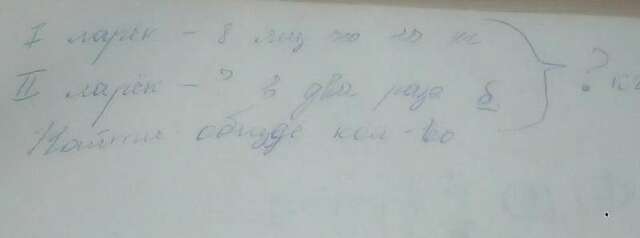 I ларёк - 8 ящ по кг
II ларёк - ? в два раза б } ? кг
Найти общее кол-во